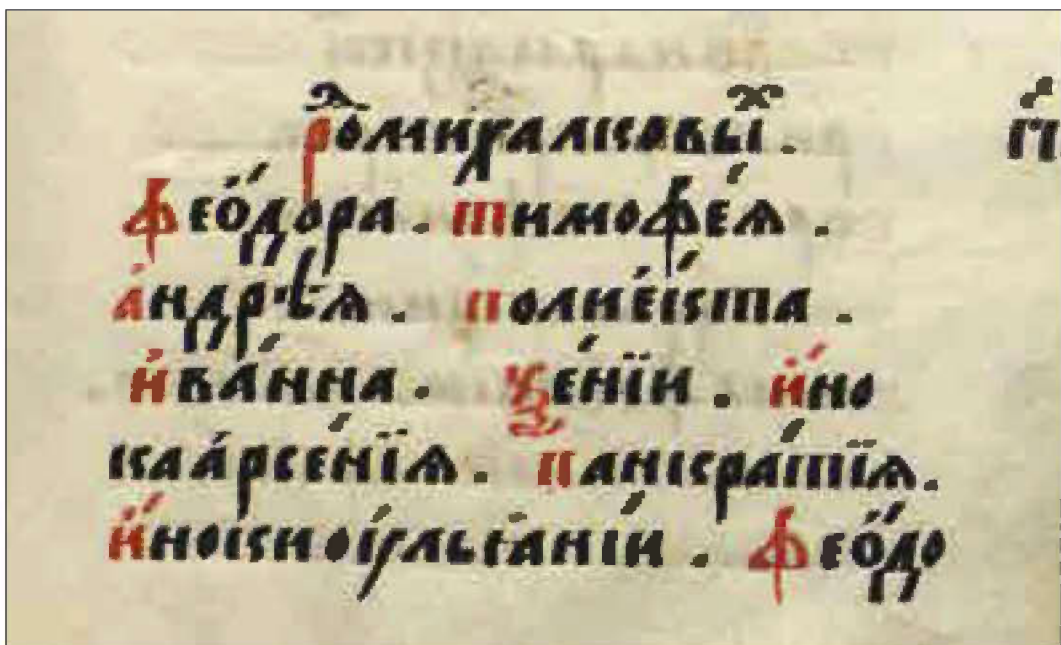 роⷣ михалковыⷯ .
феѻ́дора . тимоѳе́ѧ .
а҆ндрѣ́ѧ . полиеѵкта .
и҆ва́нна . ѯе́нїи . и҆но
ка а҆рсе́нїѧ . панкра́тїѧ .
и҆ноки оу҆льꙗ́нїи . феѻ́до